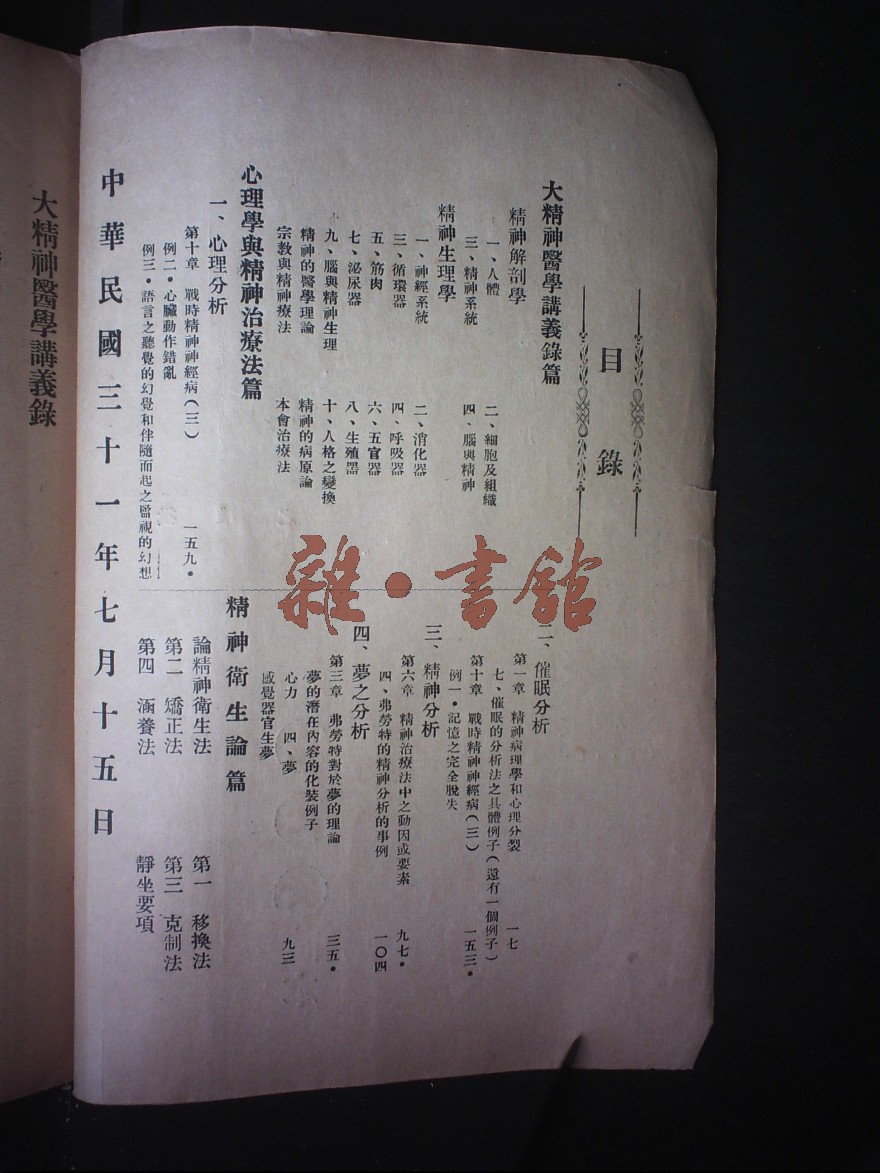 目錄
大精神醫學講義錄篇
精神解剖學
一、人體
二、細胞及組織
三、精神系統
四、腦與精神
精神生理學
一、神經系統
二、消化器
三、循環器
四、呼吸器
五、筋肉
六、五官器
七、泌尿器
八、生殖器
九、腦與精神生理
十、人格之變換
精神的醫學理論
精神的病原論
宗教與精神療法
本會治療法
心理學與精神治療法篇
一、心理分析
第十章 戰時精神神經病(三) 一五九•
例二•心臟動作錯亂
例三•語言之聽覺的幻覺和伴隨而起之監視的幻想
二、催眠分析
第一章 精神病理學和心理分裂 一七
七、催眠的分析法之具體例子(還有一個例子)
第十章 戰時精神神經病(三) 一五三•
例一•記憶之完全脫失
三、精神分析
第六章 精神治療法中之動因或要素 九七•
四、弗勞特的精神分析的事例 一〇四
四、夢之分析
第三章 弗勞特對於夢的理論 三五•
夢的潛在內容的化裝例子
心力 四、夢 九三
感覺器官生夢
精神衛生論篇
論精神衛生法
第一 移換法
第二 矯正法
第三 克制法
第四 涵養法
靜坐要項
中華民國三十一年七月十五日
大精神醫學講義錄
雜•書館